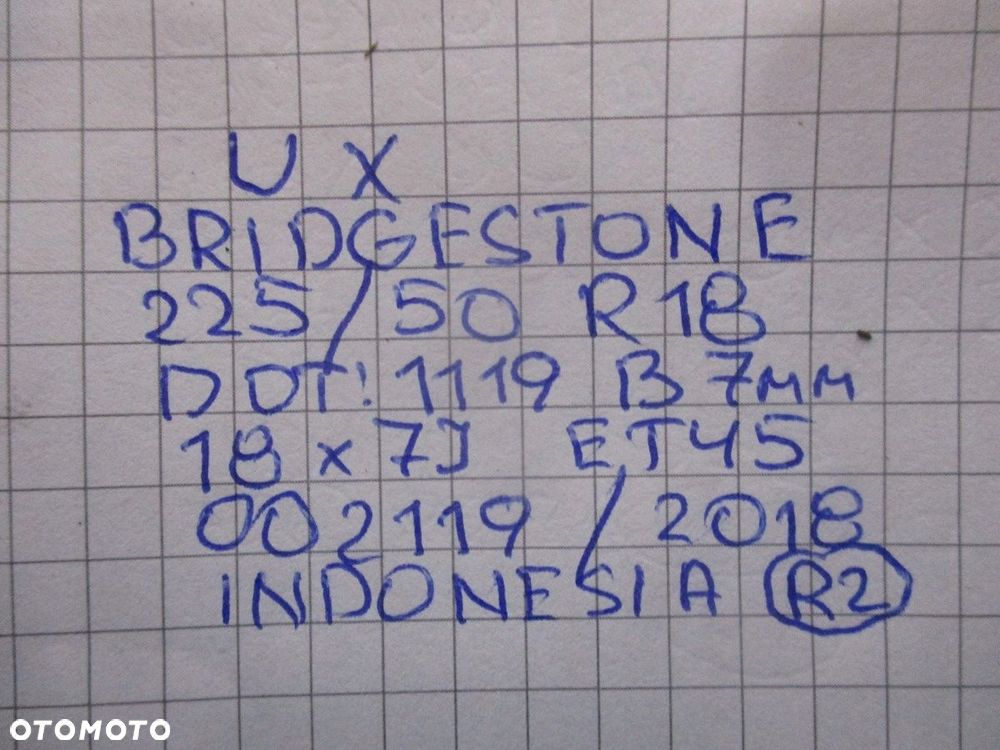 UX
BRIDGESTONE
225/50 R18
DOT: 1119 B 7mm
18 x 7J ET45
002119/2018
INDONESIA R2
OTOMOTO